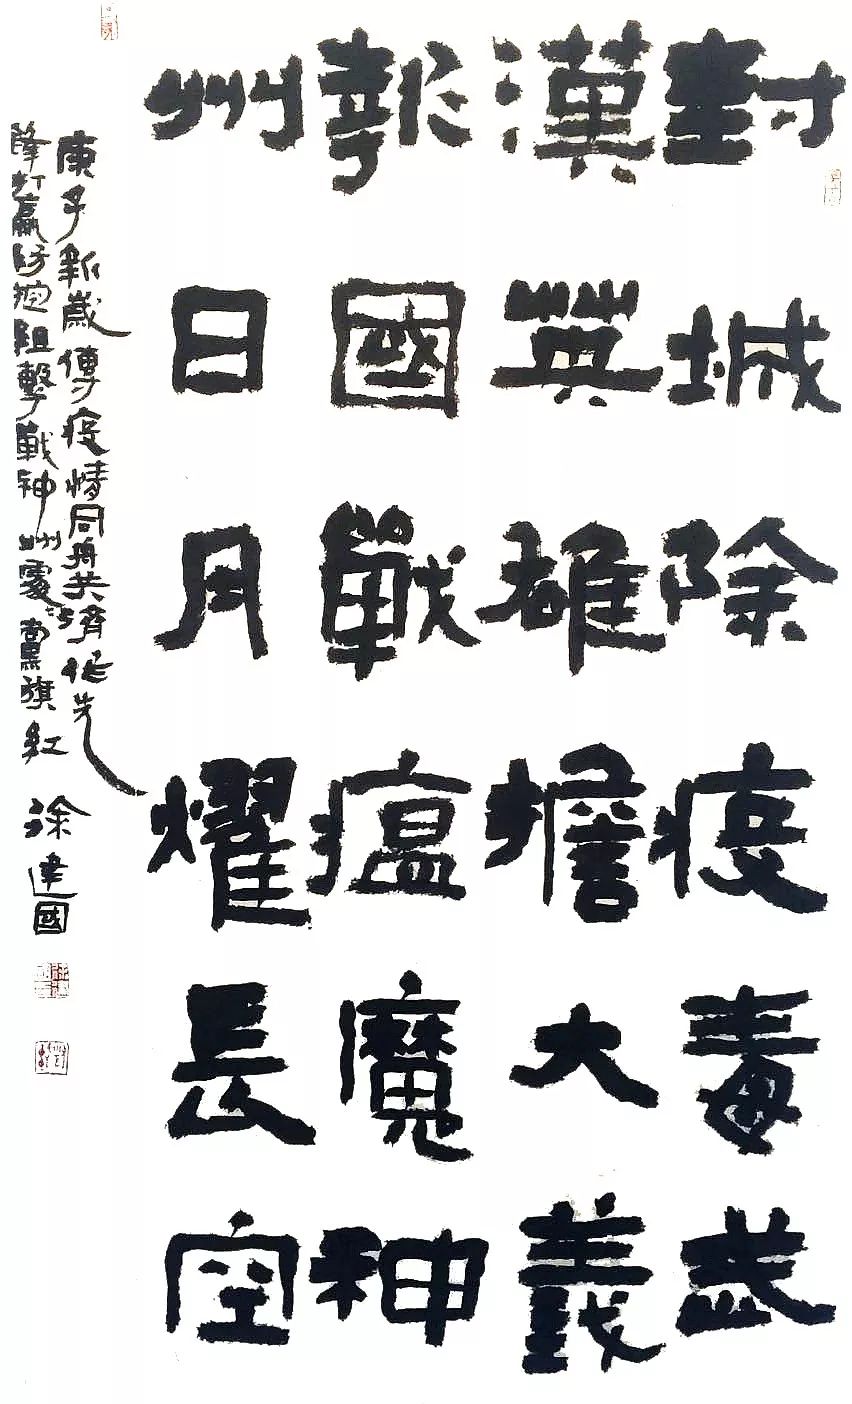 封城除疫毒武
漢英雄擔大義
報國戰瘟魔神
州日月耀長空
庚子新歲傳疫情同舟共濟作先
鋒打贏防控阻擊戰神州處處黨旗紅
涂建國